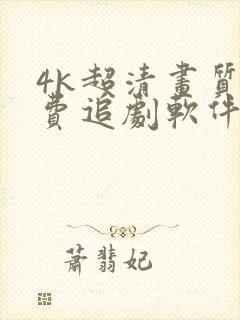 4k超清畫質
費追劇軟件
蕭翡妃